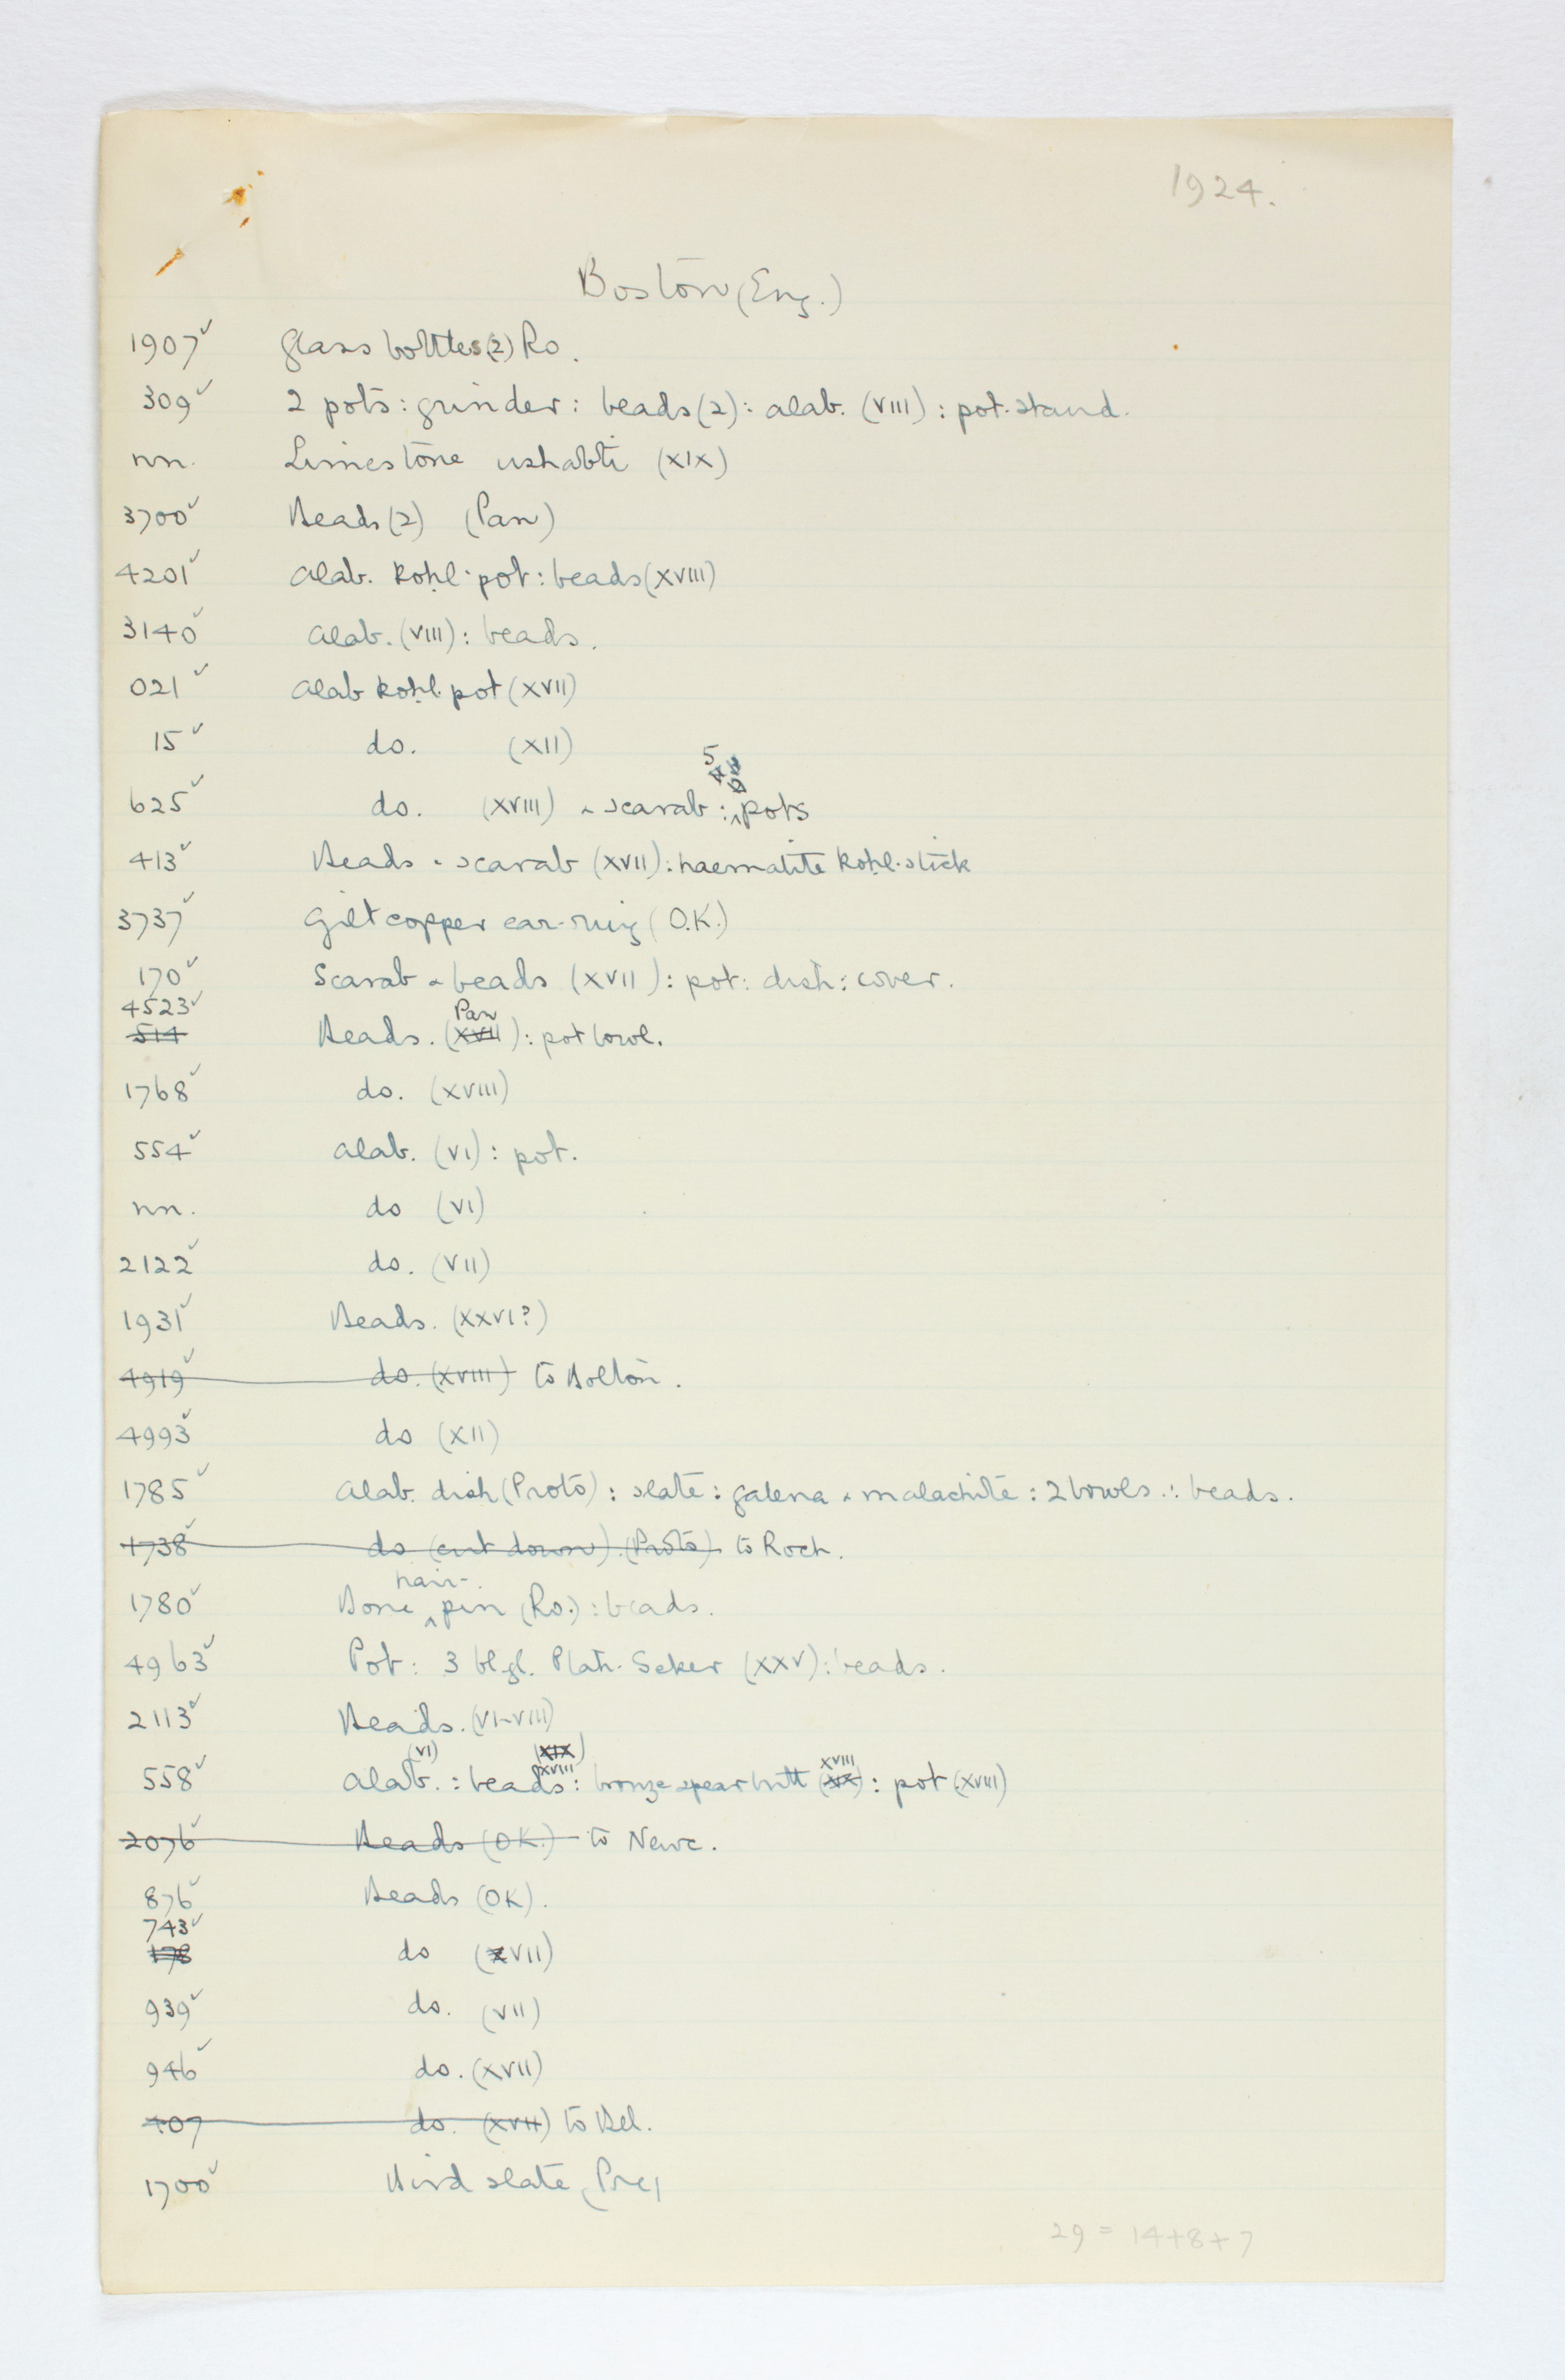 1924.
Boston (Eng.)
1907✓ Glass bottles (2) Ro.
309✓ 2 pots : grinder : beads (2) : alab. (VIII) : pot-stand.
nn. Limestone ushabti (XIX)
3700✓ Beads (2) (Pan)
4201✓ Alab. kohl-pot : beads (XVIII)
3140✓ Alab. (VIII) : beads.
021✓ Alab kohl-pot (XVII)
15✓ do. (XII)
5
625✓ do. (XVIII) & scarab : pots
413✓ Beads & scarab (XVII) : haematite kohl-stick
3737✓ Gilt copper ear-ring (O.K.)
170✓ Scarab & beads (XVII) : pot : dish : cover.
4523✓ Pan
514 Beads. (XVII) : pot bowl.
1768✓ do. (XVIII)
554✓ Alab. (VI) : pot.
nn. do (VI)
2122✓ do. (VII)
1931✓ Beads. (XXVI?)
4919✓ do. (XVIII) to Bolton.
4993✓ do (XII)
1785✓ Alab. dish (Proto) : slate : galena & malachite : 2 bowls : beads.
1738✓ do (cut down) (Proto) to Roch.
hair-
1780✓ Bone pin (Ro.) : beads.
4963✓ Pot : 3 bl. gl. Ptah-Seker (XXV) : beads.
2113✓ Beads. (VI-VIII)
(VI) (XIX) XVIII
558✓ Alab. : beads XVIII : bronze spear butt (XX) : pot (XVIII)
2076✓ Beads (OK.) to Newc.
876✓ Beads (OK).
743✓
178 do (XVII)
939✓ do. (VII)
946✓ do. (XVII)
407 do. (XVII) to Bel.
1700✓ Bird slate (Pre)
29 = 14+8+7